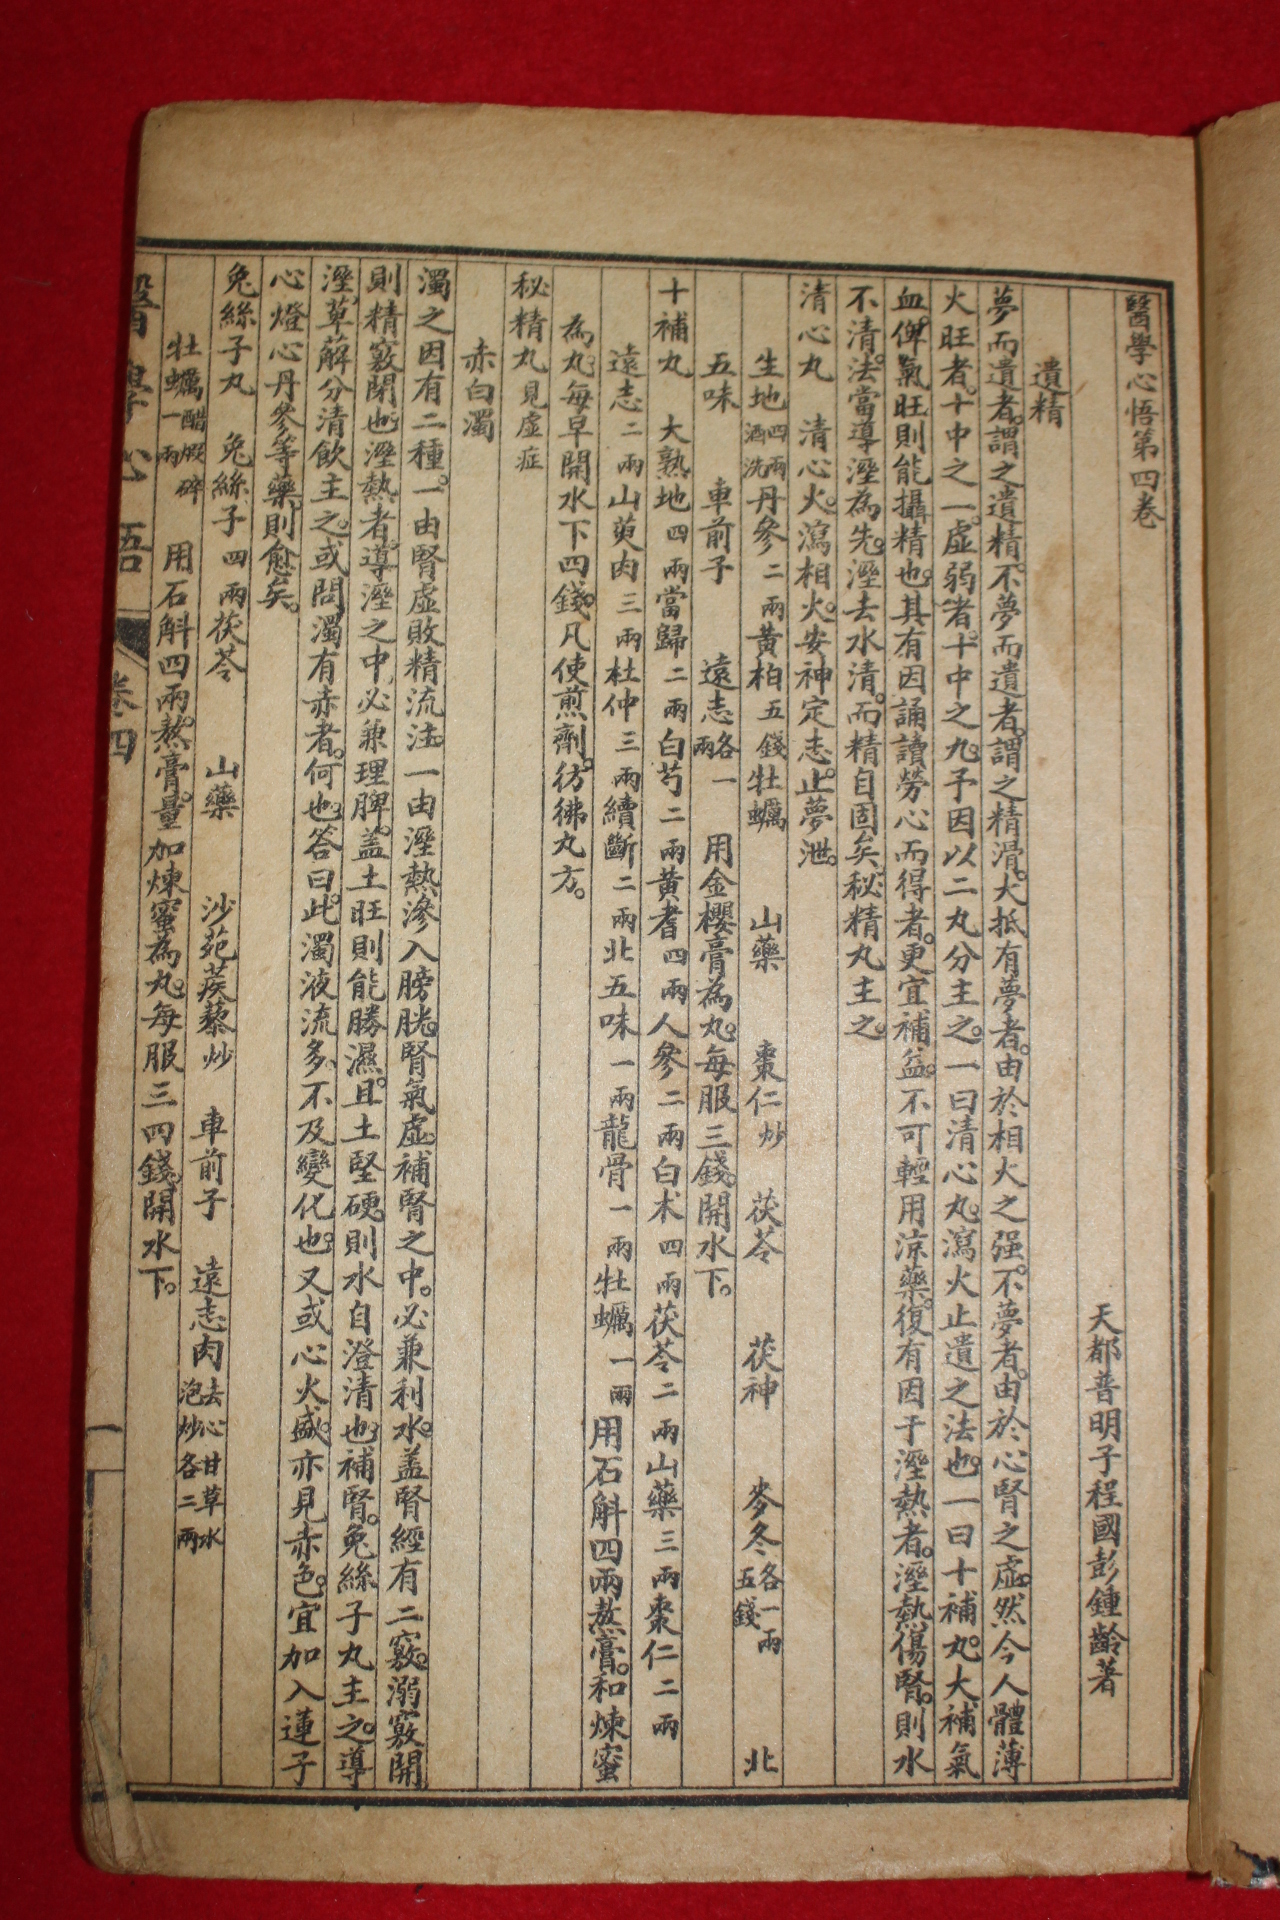 醫學心悟第四卷
天都普明子程國彭鍾齡著
遺精
夢而遺者。謂之遺精。不夢而遺者。謂之精滑。大抵有夢者。由於相火之强。不夢者。由於心腎之虛。然今人體薄
火旺者。十中之一。虛弱者。十中之九。予因以二丸分主之。一曰清心丸。瀉火止遺之法也。一曰十補丸。大補氣
血。俾氣旺則能攝精也。其有因誦讀勞心而得者。更宜補益。不可輕用涼藥。復有因于溼熱者。溼熱傷腎。則水
不清。法當導溼為先。溼去水清。而精自固矣。秘精丸主之。
清心丸 清心火。瀉相火。安神定志。止夢泄。
生地四兩酒洗 丹參二兩 黃柏五錢 牡蠣 山藥 棗仁炒 茯苓 茯神 麥冬各一兩五錢 北
五味 車前子 遠志各一兩 用金櫻膏為丸。每服三錢。開水下。
十補丸 大熟地四兩 當歸二兩 白芍二兩 黃耆四兩 人參二兩 白朮四兩 茯苓二兩 山藥三兩 棗仁二兩
遠志二兩 山萸肉三兩 杜仲三兩 續斷二兩 北五味一兩 龍骨一兩 牡蠣一兩 用石斛四兩熬膏。和煉蜜
為丸。每早開水下四錢。凡使煎劑。彷彿丸方。
秘精丸見虛症
赤白濁
濁之因有二種。一由腎虛敗精流注。一由溼熱滲入膀胱。腎氣虛。補腎之中。必兼利水。蓋腎經有二竅。溺竅開
則精竅閉也。溼熱者。導溼之中。必兼理脾。蓋土旺則能勝濕。且土堅硬。則水自澄清也。補腎。兔絲子丸主之。導
溼。萆薢分清飲主之。或問濁有赤者。何也。答曰。此濁液流多。不及變化也。又或心火盛。亦見赤色。宜加入蓮子
心燈心丹參等藥。則愈矣。
兔絲子丸 兔絲子四兩 茯苓 山藥 沙苑蒺藜炒 車前子 遠志肉去心甘草水泡炒各二兩
牡蠣醋煆碎一兩 用石斛四兩。熬膏。量加煉蜜為丸。每服三四錢。開水下。
醫學心悟 卷四 一